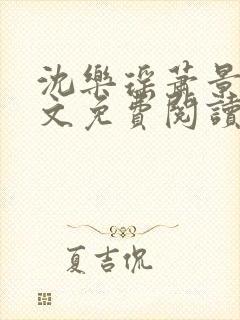 沈樂瑤蕭景
文免費閱讀
夏吉侃